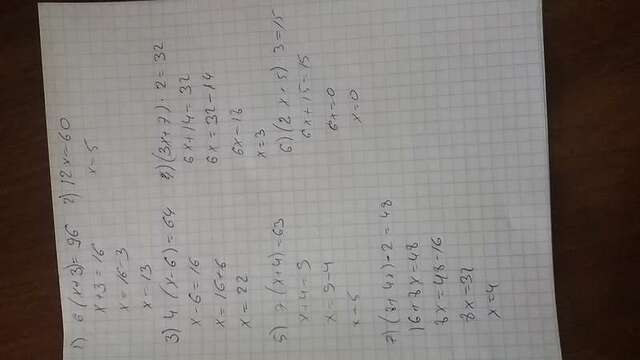 1) 6 (x+3)= 96
x+3 = 16
x = 16-3
x = 13
2) 12x=60
x=5
3) 4 (x-6) = 64
x-6 = 16
x = 16+6
x = 22
4) (3x+7) · 2 = 32
6x+14 = 32
6x = 32-14
6x=18
x=3
5) 7 (x+4)=63
x+4=9
x = 9-4
x=5
6) (2x+5) 3=15
6x+15=15
6x=0
x=0
7) (8+4x)·2 = 48
16+8x=48
8x=48-16
8x=32
x=4